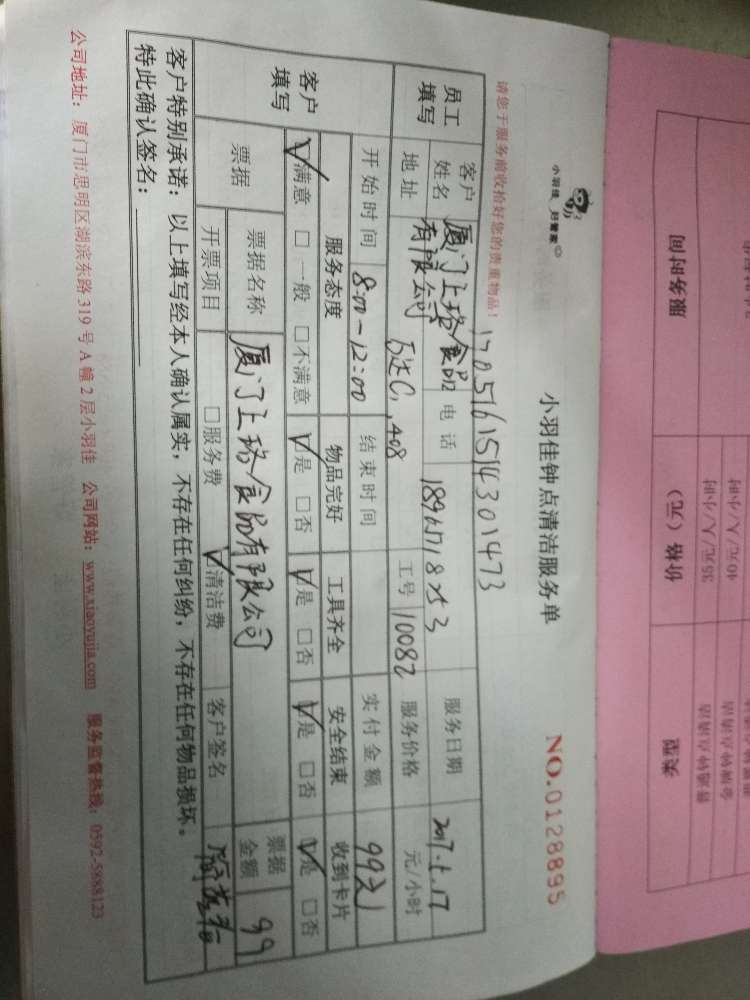 小羽佳 好管家
小羽佳钟点清洁服务单
NO.0128895
请您于服务前收拾好您的贵重物品！
1705161514301473
员工填写 客户姓名 厦门上珞食品有限公司 电话 18965718253 服务日期 2017.5.17
地址 C1,408 工号 10082 服务价格 元/小时
客户填写 开始时间 8:00-12:00 结束时间 实付金额 99
服务态度 物品完好 工具齐全 安全结束 收到卡片
☑满意 □一般 □不满意 ☑是 □否 ☑是 □否 ☑是 □否 ☑是 □否
票据 票据名称 厦门上珞食品有限公司 票据金额 99
开票项目 □服务费 ☑清洁费 客户签名
客户特别承诺：以上填写经本人确认属实，不存在任何纠纷，不存在任何物品损坏。
特此确认签名：
公司地址：厦门市思明区湖滨东路319号A幢2层小羽佳 公司网站：www.xiaoyujia.com 服务监督热线：0592-5888123
服务时间 价格（元） 类型
40元/人/小时
35元/人/小时